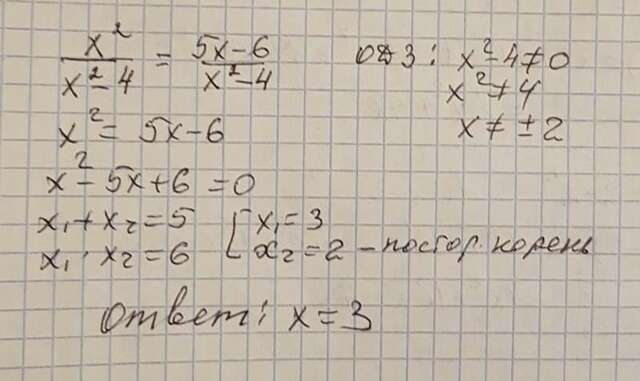 x²/(x²-4) = (5x-6)/(x²-4)
ОДЗ: x²-4≠0
x²≠4
x≠±2
x² = 5x-6
x²-5x+6=0
x₁+x₂=5
x₁·x₂=6
[x₁=3
x₂=2 - постор. корень
Ответ: x=3